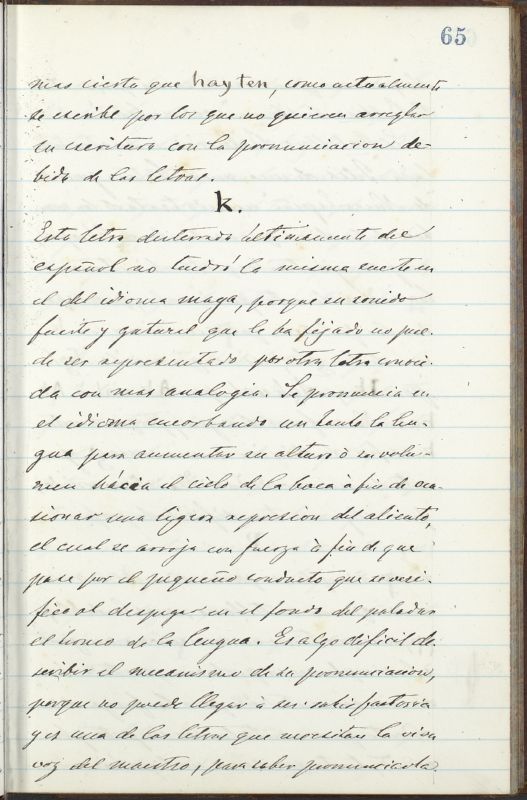 65
mas cierto que hayten, como actualmente
se escribe por los que no quieren arreglar
su escritura con la pronunciacion de-
bida de las letras.
k.
Esta letra desterrada últimamente del
español no tendrá la misma suerte en
el del idioma maya, porque su sonido
fuerte y gutural que le ha fijado no pue-
de ser representado por otra letra conoci-
da con mas analogia. Se pronuncia en
el idioma encorbando un tanto la len-
gua para aumentar su altura ó su volu-
men hácia el cielo de la boca á fin de oca-
sionar una ligera represion del aliento,
el cual se arroja con fuerza á fin de que
pase por el pequeño conducto que se veri-
fica al despegar en el fondo del paladar
el tronco de la lengua. Es algo dificil de-
scribir el mecanismo de su pronunciacion,
porque no puede llegar á ser satisfactoria
y es una de las letras que necesitan la viva
voz del maestro, para saber pronunciarla.